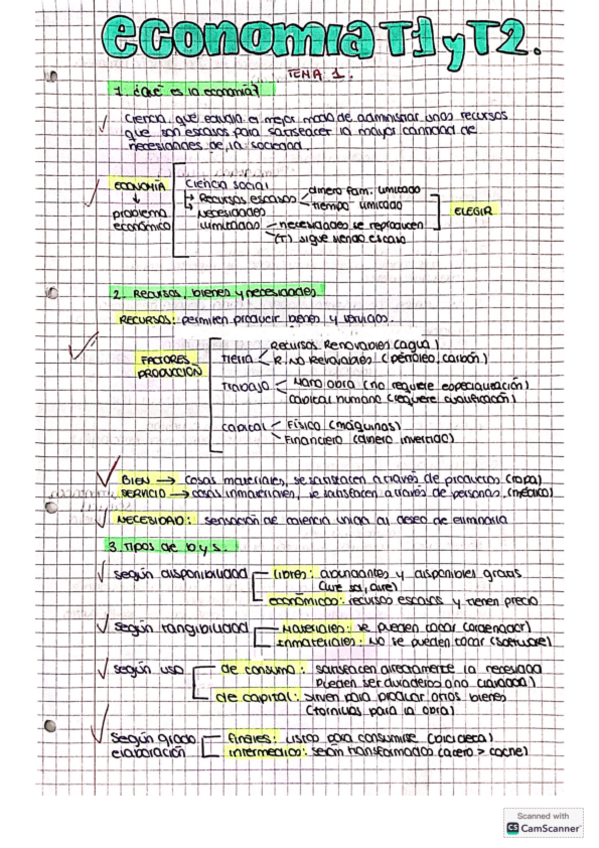 economía T1 y T2.
TEMA 1.
1. ¿Qué es la economía?
Ciencia que estudia el mejor modo de administrar unos recursos
que son escasos para satisfacer la mayor cantidad de
necesidades de la sociedad.
ECONOMÍA
problema
económico
Ciencia social
Recursos escasos
dinero fam. limitado
tiempo limitado
Necesidades
ilimitadas
necesidades se reproducen
(T) sigue siendo escaso
ELEGIR
2. Recursos, bienes y necesidades
RECURSOS: permiten producir bienes y servicios.
FACTORES
PRODUCCIÓN
Tierra
Recursos Renovables (agua)
R. NO Renovables (petróleo, carbón)
Trabajo
Mano obra (no requiere especialización)
Capital humano (requiere cualificación)
capital
Físico (máquinas)
Financiero (dinero invertido)
BIEN → cosas materiales, se satisfacen a través de productos (ropa)
SERVICIO → cosas inmateriales, se satisfacen a través de personas (médico)
NECESIDAD: sensación de carencia unida al deseo de eliminarla
3. Tipos de b y s.
según disponibilidad
libres: abundantes y disponibles gratis
(luz sol, aire)
económicos: recursos escasos y tienen precio
según tangibilidad
Materiales: se pueden tocar (ordenador)
Inmateriales: NO se pueden tocar (software)
según uso
de consumo: satisfacen directamente la necesidad
Pueden ser duraderos o no (lavadora)
de capital: sirven para producir otros bienes
(tornillos para la obra)
Según grado
elaboración
finales: listos para consumirse (bicicleta)
intermedios: serán transformados (acero > coche)
Scanned with
CS CamScanner